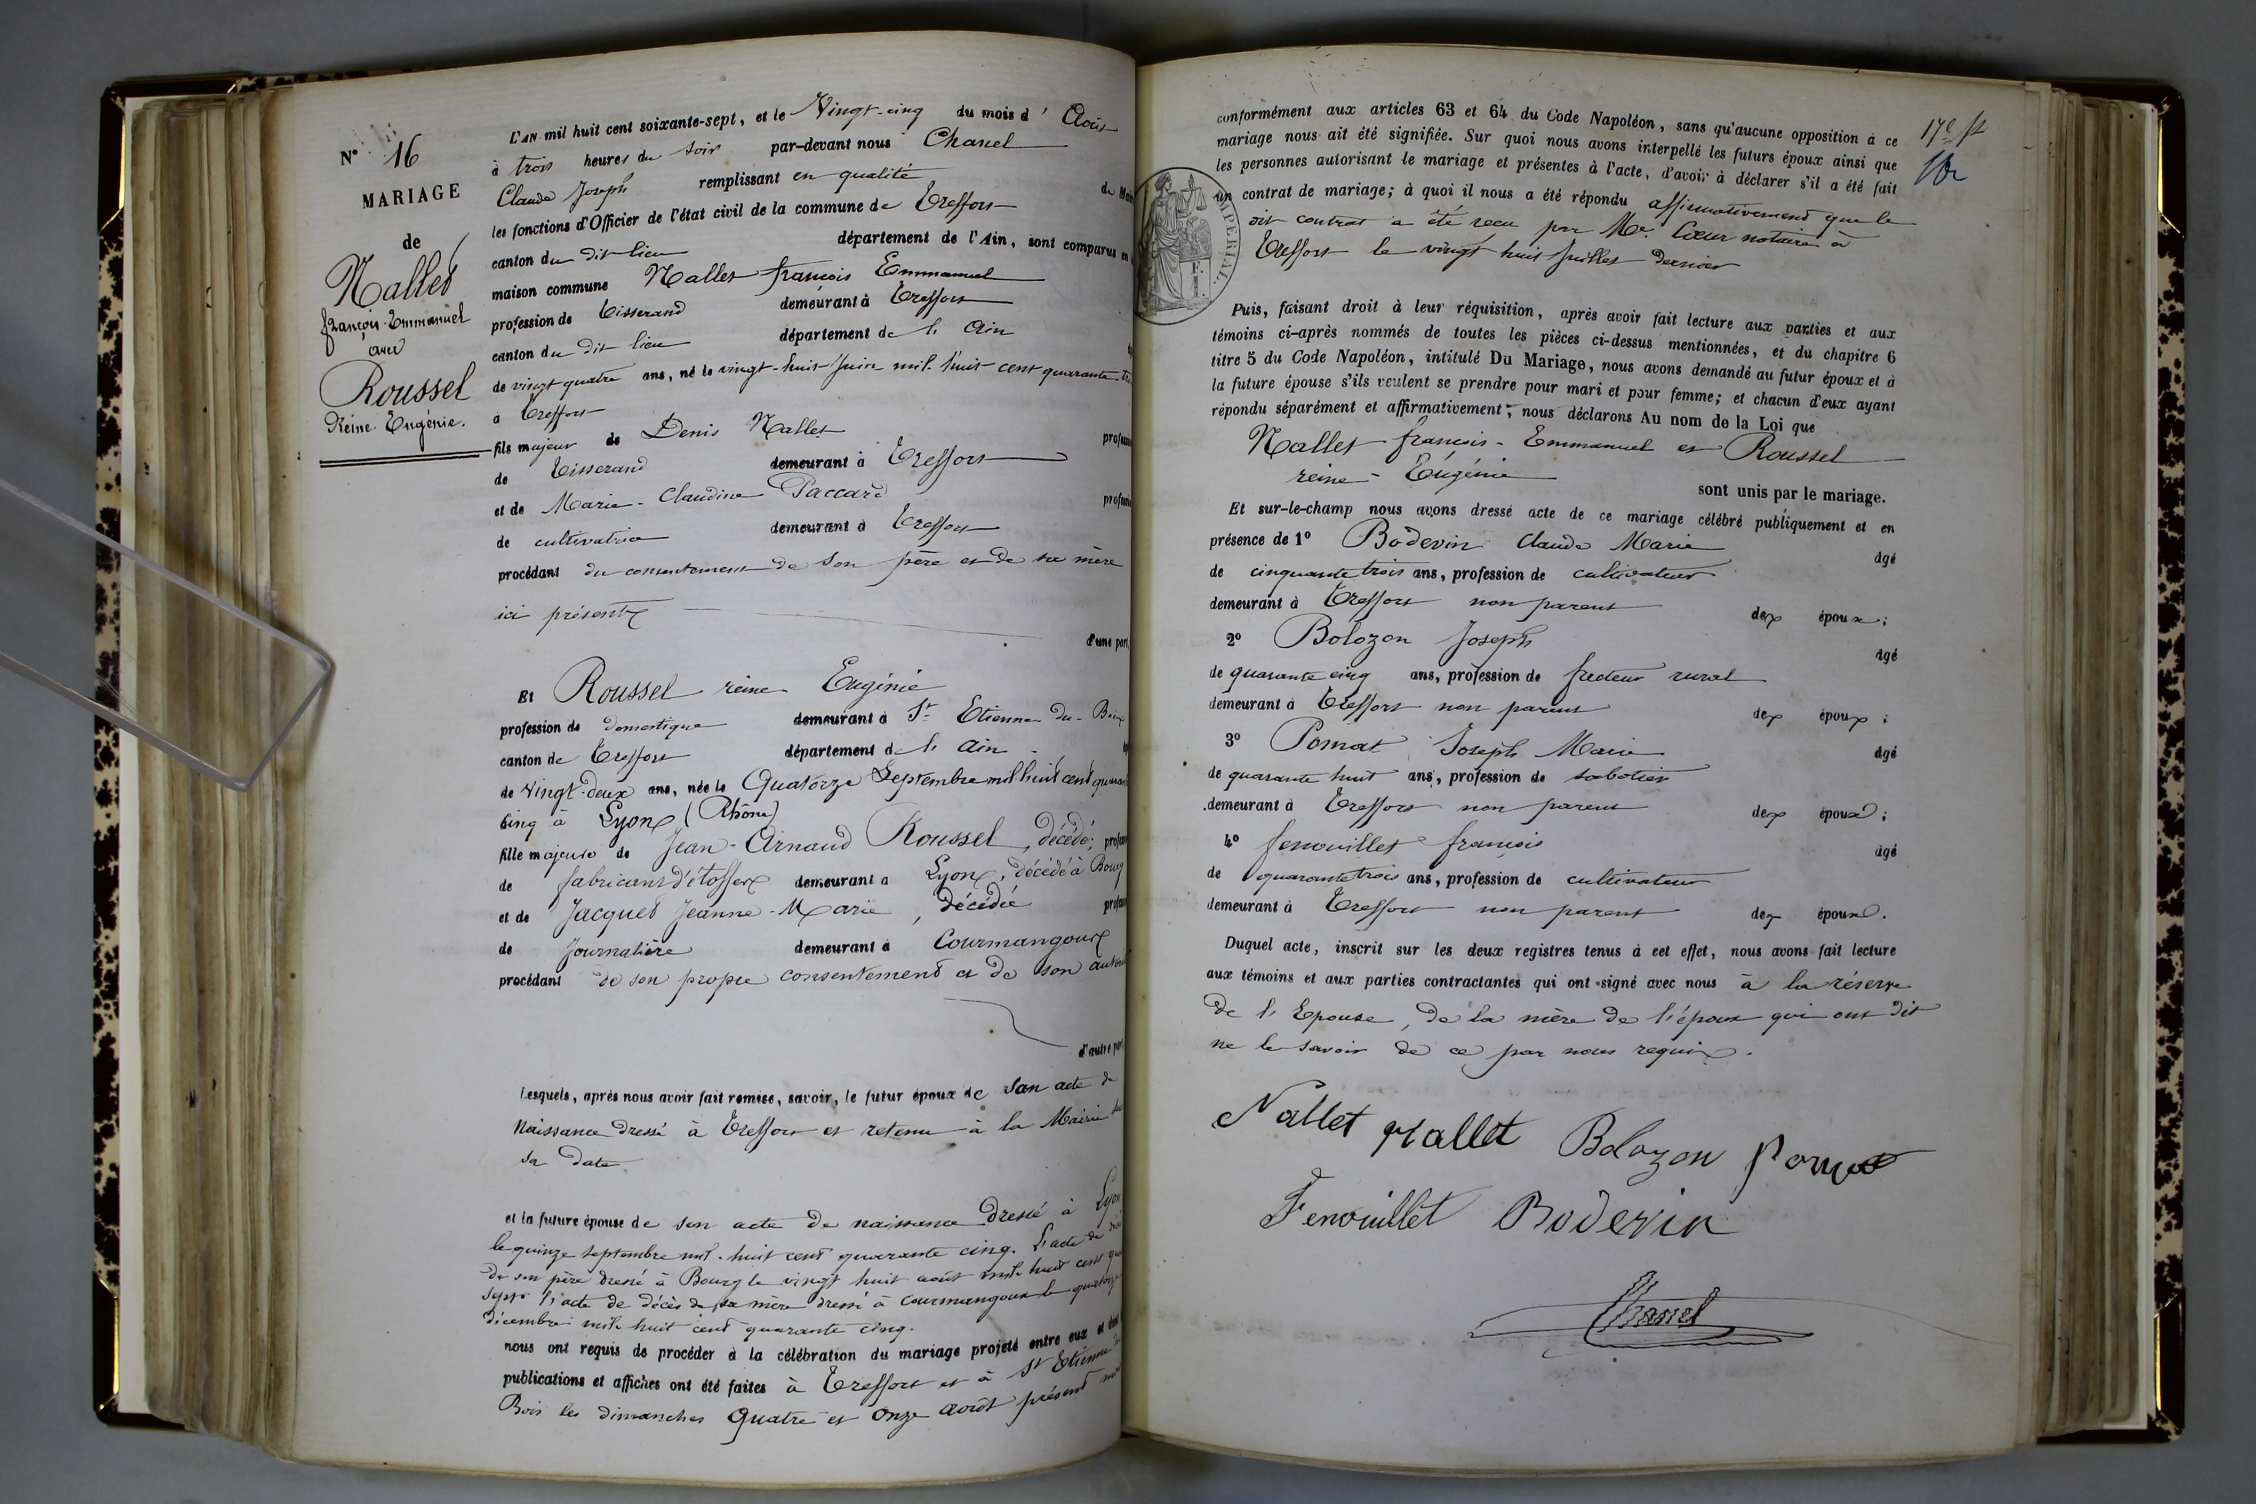 N° 16
MARIAGE
de
Nallet
françois-Emmanuel
avec
Roussel
Reine Eugénie.
L'AN mil huit cent soixante-sept, et le Vingt-cinq du mois d'Août
à trois heures du soir par-devant nous Chanel
Claude Joseph remplissant en qualité de Maire
les fonctions d'Officier de l'état civil de la commune de Treffort
canton du dit lieu département de l'Ain, sont comparus en
maison commune Nallet françois Emmanuel
profession de tisserand demeurant à Treffort
canton du dit lieu département de l'Ain
de vingt quatre ans, né le vingt-huit Juin mil huit cent quarante-
à Treffort
fils majeur de Denis Nallet
de tisserand demeurant à Treffort
et de Marie-Claudine Paccard
de cultivatrice demeurant à Treffort
procédant du consentement de son père et de sa mère
ici présents
d'une part,
Et Roussel reine Eugénie
profession de domestique demeurant à St Etienne-du-Bois
canton de Treffort département de l'Ain
de Vingt-deux ans, née le Quatorze Septembre mil huit cent
cinq à Lyon (Rhône)
fille majeure de Jean-Arnaud Roussel, décédé;
de fabricant d'étoffes demeurant à Lyon, décédé à Bourg
et de Jacquet Jeanne-Marie, décédée
de Journalière demeurant à Courmangoux
procédant de son propre consentement et de son
d'autre part
Lesquels, après nous avoir fait remise, savoir, le futur époux de son acte de
Naissance dressé à Treffort et retenu à la Mairie
sa date
et la future épouse de son acte de naissance dressé à Lyon
le quinze septembre mil-huit cent quarante cinq. L'acte de
de son père dressé à Bourg le vingt huit août mil huit cent
sept. l'acte de décès de sa mère dressé à Courmangoux le quatorze
décembre mil huit cent quarante cinq.
nous ont requis de procéder à la célébration du mariage projeté entre eux et
publications et affiches ont été faites à Treffort et à St Etienne
Bois les dimanches quatre et onze août présent
17e ft
IMPERIAL.
conformément aux articles 63 et 64 du Code Napoléon, sans qu'aucune opposition à ce
mariage nous ait été signifiée. Sur quoi nous avons interpellé les futurs époux ainsi que
les personnes autorisant le mariage et présentes à l'acte, d'avoir à déclarer s'il a été fait
un contrat de mariage; à quoi il nous a été répondu affirmativement que le
dit contrat a été recu par Me. Cœur notaire à
Treffort le vingt huit Juillet dernier
Puis, faisant droit à leur réquisition, après avoir fait lecture aux parties et aux
témoins ci-après nommés de toutes les pièces ci-dessus mentionnées, et du chapitre 6
titre 5 du Code Napoléon, intitulé Du Mariage, nous avons demandé au futur époux et à
la future épouse s'ils veulent se prendre pour mari et pour femme; et chacun d'eux ayant
répondu séparément et affirmativement, nous déclarons Au nom de la Loi que
Nallet francois-Emmanuel et Roussel
reine-Eugénie
sont unis par le mariage.
Et sur-le-champ nous avons dressé acte de ce mariage célébré publiquement et en
présence de 1° Bodevin Claude Marie âgé
de cinquante trois ans, profession de cultivateur
demeurant à Treffort non parent des époux;
2° Bolozon Joseph âgé
de quarante cinq ans, profession de facteur rural
demeurant à Treffort non parent des époux;
3° Pomat Joseph Marie âgé
de quarante huit ans, profession de sabotier
demeurant à Treffort non parent des époux;
4° fenouillet françois âgé
de quarante trois ans, profession de cultivateur
demeurant à Treffort non parent des époux.
Duquel acte, inscrit sur les deux registres tenus à cet effet, nous avons fait lecture
aux témoins et aux parties contractantes qui ont signé avec nous à la réserve
de l'Epouse, de la mère de l'époux qui ont dit
ne le savoir de ce par nous requis.
Nallet Nallet Bolozon Pomat
Fenouillet Bodevin
Chanel